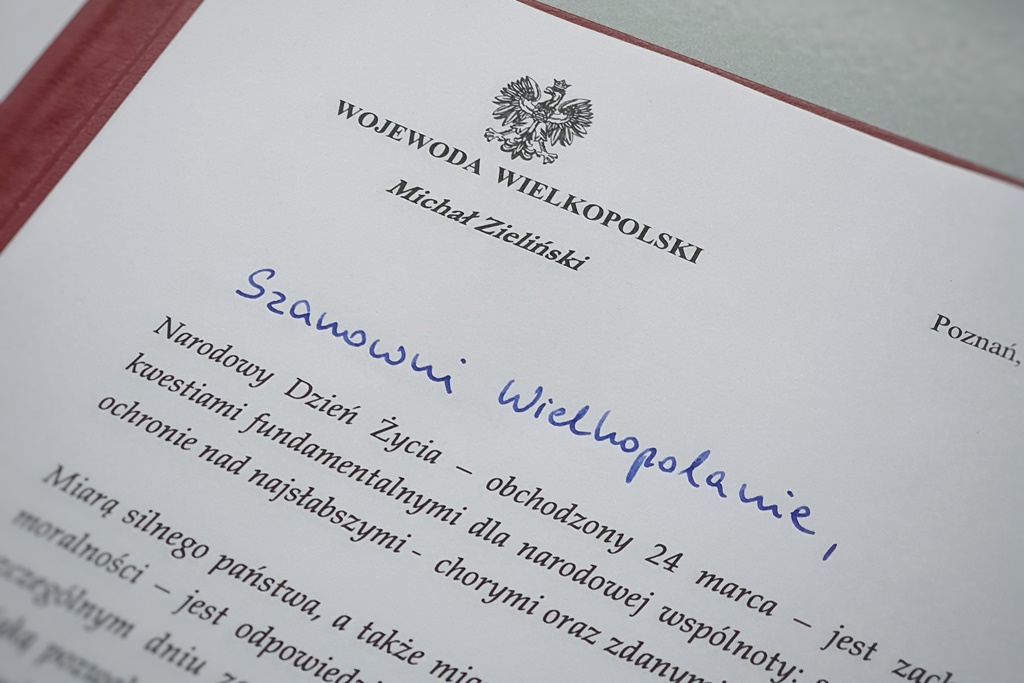 WOJEWODA WIELKOPOLSKI
Michał Zieliński
Poznań,
Szanowni Wielkopolanie,
Narodowy Dzień Życia – obchodzony 24 marca – jest
kwestiami fundamentalnymi dla narodowej wspólnoty:
ochronie nad najsłabszymi - chorymi oraz
Miarą silnego państwa, a także
moralności – jest
dniu